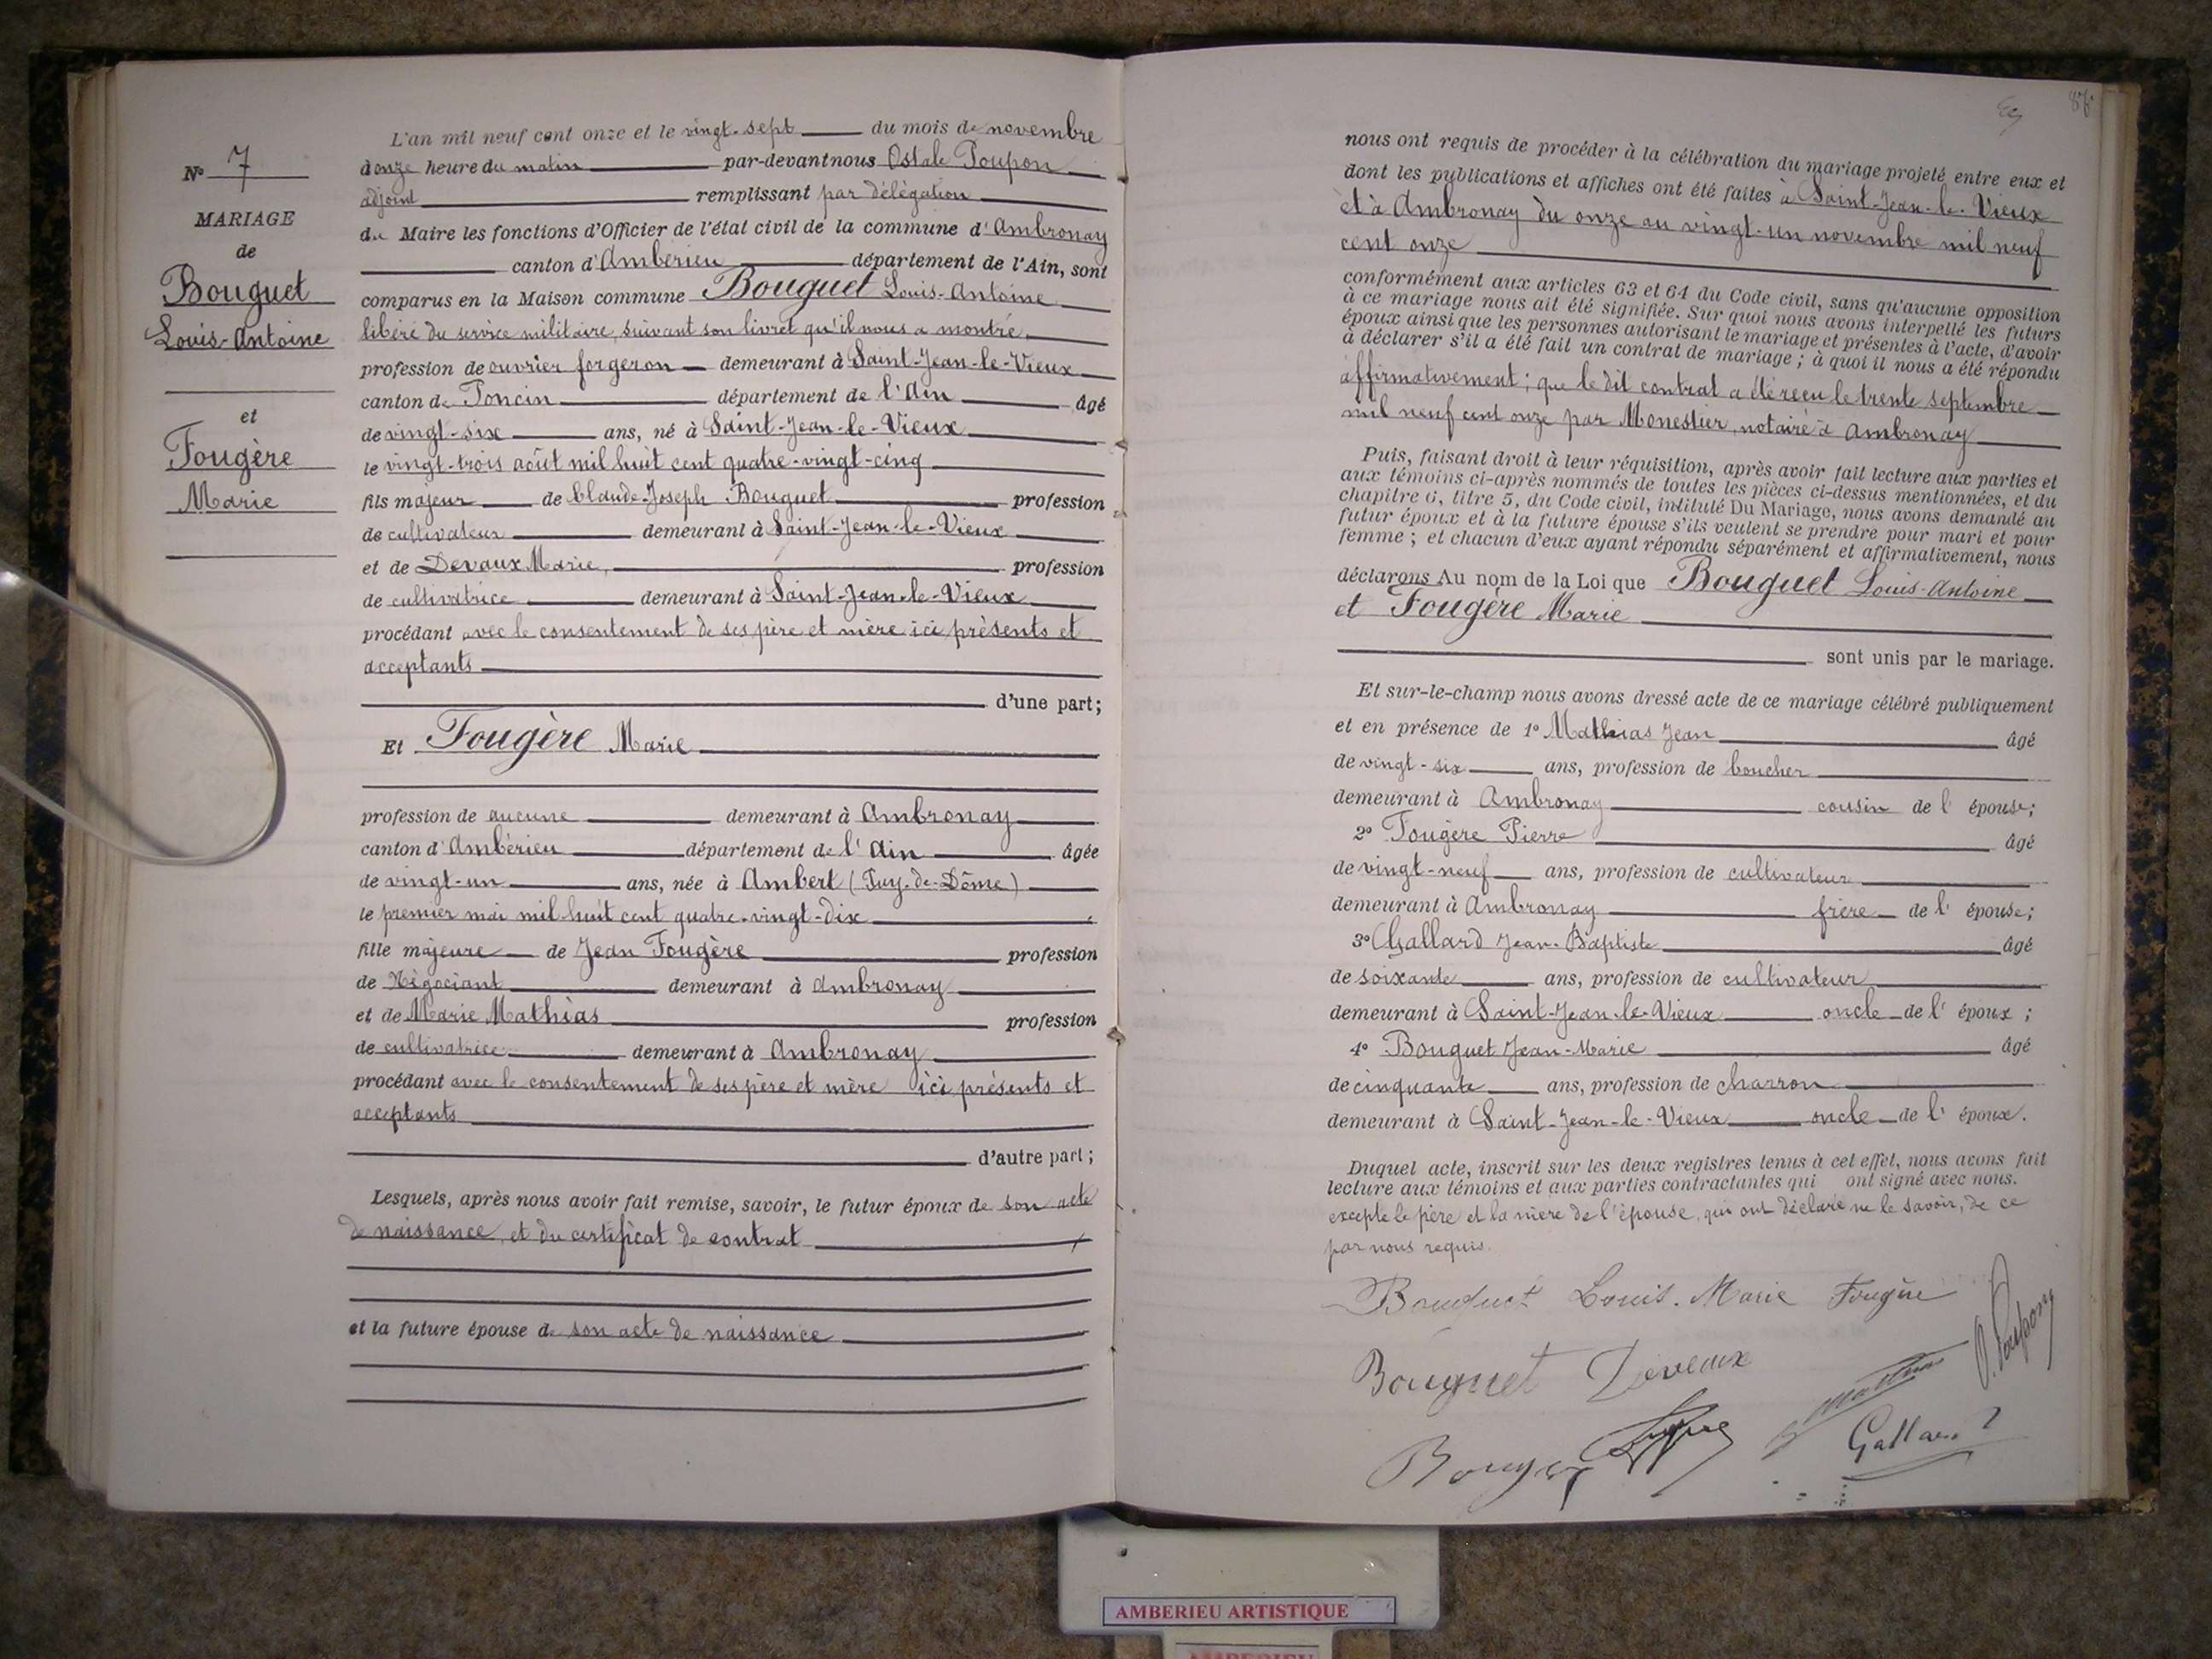 Nº 7
MARIAGE
de
Bouguet
Louis-Antoine
et
Fougère
Marie
L'an mil neuf cent onze et le vingt-sept du mois de novembre
à onze heure du matin par-devant nous Ostale Poupon
adjoint remplissant par délégation
du Maire les fonctions d'Officier de l'état civil de la commune d'Ambronay
canton d'Ambérieu département de l'Ain, sont
comparus en la Maison commune Bouguet Louis-Antoine
libéré du service militaire, suivant son livret qu'il nous a montré,
profession de ouvrier forgeron demeurant à Saint-Jean-le-Vieux
canton de Poncin département de l'Ain âgé
de vingt-six ans, né à Saint-Jean-le-Vieux
le vingt-trois août mil huit cent quatre-vingt-cinq
fils majeur de Claude-Joseph Bouguet profession
de cultivateur demeurant à Saint-Jean-le-Vieux
et de Devaux Marie, profession
de cultivatrice demeurant à Saint-Jean-le-Vieux
procédant avec le consentement de ses père et mère ici présents et
acceptants
d'une part;
Et Fougère Marie
profession de aucune demeurant à Ambronay
canton d'Ambérieu département de l'Ain âgée
de vingt-un ans, née à Ambert (Puy-de-Dôme)
le premier mai mil huit cent quatre-vingt-dix
fille majeure de Jean Fougère profession
de Négociant demeurant à Ambronay
et de Marie Mathias profession
de cultivatrice demeurant à Ambronay
procédant avec le consentement de ses père et mère ici présents et
acceptants
d'autre part;
Lesquels, après nous avoir fait remise, savoir, le futur époux de son acte
de naissance, et du certificat de contrat
et la future épouse de son acte de naissance
87
nous ont requis de procéder à la célébration du mariage projeté entre eux et
dont les publications et affiches ont été faites à Saint-Jean-le-Vieux
et à Ambronay du onze au vingt-un novembre mil neuf
cent onze
conformément aux articles 63 et 64 du Code civil, sans qu'aucune opposition
à ce mariage nous ait été signifiée. Sur quoi nous avons interpellé les futurs
époux ainsi que les personnes autorisant le mariage et présentes à l'acte, d'avoir
à déclarer s'il a été fait un contrat de mariage; à quoi il nous a été répondu
affirmativement; que le dit contrat a été reçu le trente septembre
mil neuf cent onze par Monestier, notaire à Ambronay
Puis, faisant droit à leur réquisition, après avoir fait lecture aux parties et
aux témoins ci-après nommés de toutes les pièces ci-dessus mentionnées, et du
chapitre 6, titre 5, du Code civil, intitulé Du Mariage, nous avons demandé au
futur époux et à la future épouse s'ils veulent se prendre pour mari et pour
femme; et chacun d'eux ayant répondu séparément et affirmativement, nous
déclarons Au nom de la Loi que Bouguet Louis-Antoine
et Fougère Marie
sont unis par le mariage.
Et sur-le-champ nous avons dressé acte de ce mariage célébré publiquement
et en présence de 1º Mathias Jean âgé
de vingt-six ans, profession de boucher
demeurant à Ambronay cousin de l'épouse;
2º Fougère Pierre âgé
de vingt-neuf ans, profession de cultivateur
demeurant à Ambronay frère de l'épouse;
3º Gallard Jean-Baptiste âgé
de soixante ans, profession de cultivateur
demeurant à Saint-Jean-le-Vieux oncle de l'époux;
4º Bouguet Jean-Marie âgé
de cinquante ans, profession de charron
demeurant à Saint-Jean-le-Vieux oncle de l'époux.
Duquel acte, inscrit sur les deux registres tenus à cet effet, nous avons fait
lecture aux témoins et aux parties contractantes qui ont signé avec nous.
excepté le père et la mère de l'épouse, qui ont déclaré ne le savoir, de ce
par nous requis.
Bouguet Louis. Marie Fougère
O. Poupon
Bouguet Deveaux
Bouguet
Gallard
AMBERIEU ARTISTIQUE
AMBERIEU